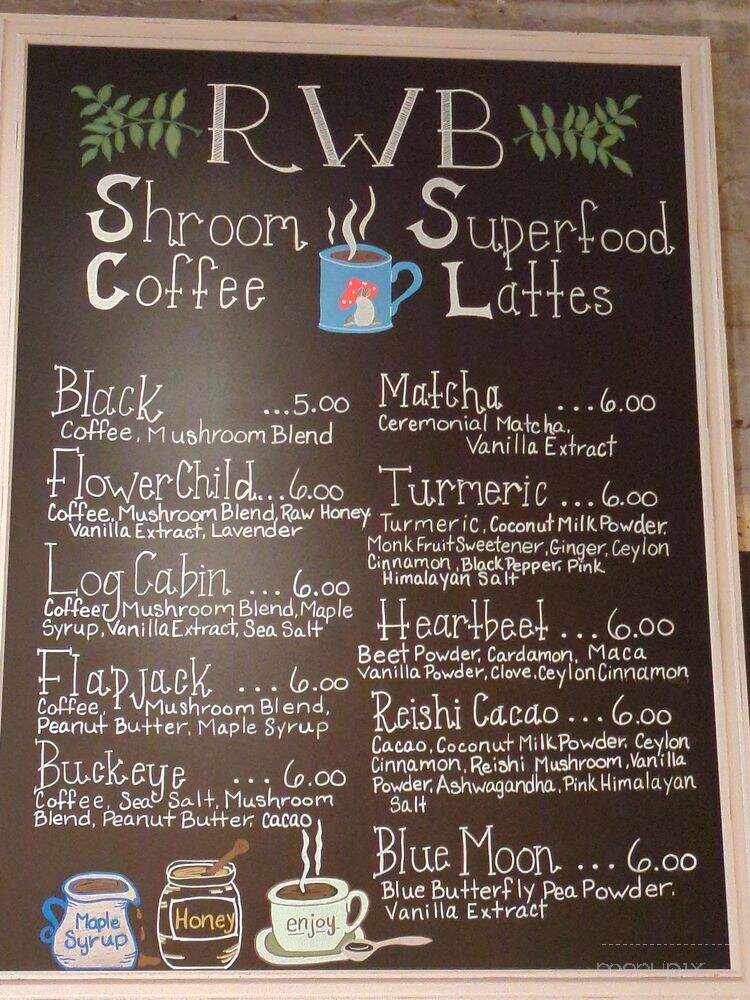 RWB
Shroom
Coffee
Superfood
Lattes
Black ...5.00
Coffee, Mushroom Blend
Flower Child...6.00
Coffee, Mushroom Blend, Raw Honey
Vanilla Extract, Lavender
Log Cabin ...6.00
Coffee, Mushroom Blend, Maple
Syrup, Vanilla Extract, Sea Salt
Flapjack ...6.00
Coffee, Mushroom Blend,
Peanut Butter, Maple Syrup
Buckeye ...6.00
Coffee, Sea Salt, Mushroom
Blend, Peanut Butter, cacao
Matcha ...6.00
Ceremonial Matcha,
Vanilla Extract
Turmeric ...6.00
Turmeric, Coconut Milk Powder,
Monk Fruit Sweetener, Ginger, Ceylon
Cinnamon, Black Pepper, Pink
Himalayan Salt
Heartbeet ...6.00
Beet Powder, Cardamon, Maca
Vanilla Powder, Clove, Ceylon Cinnamon
Reishi Cacao ...6.00
Cacao, Coconut Milk Powder, Ceylon
Cinnamon, Reishi Mushroom, Vanilla
Powder, Ashwagandha, Pink Himalayan
Salt
Blue Moon ...6.00
Blue Butterfly Pea Powder,
Vanilla Extract
Maple
Syrup
Honey
enjoy
menupix